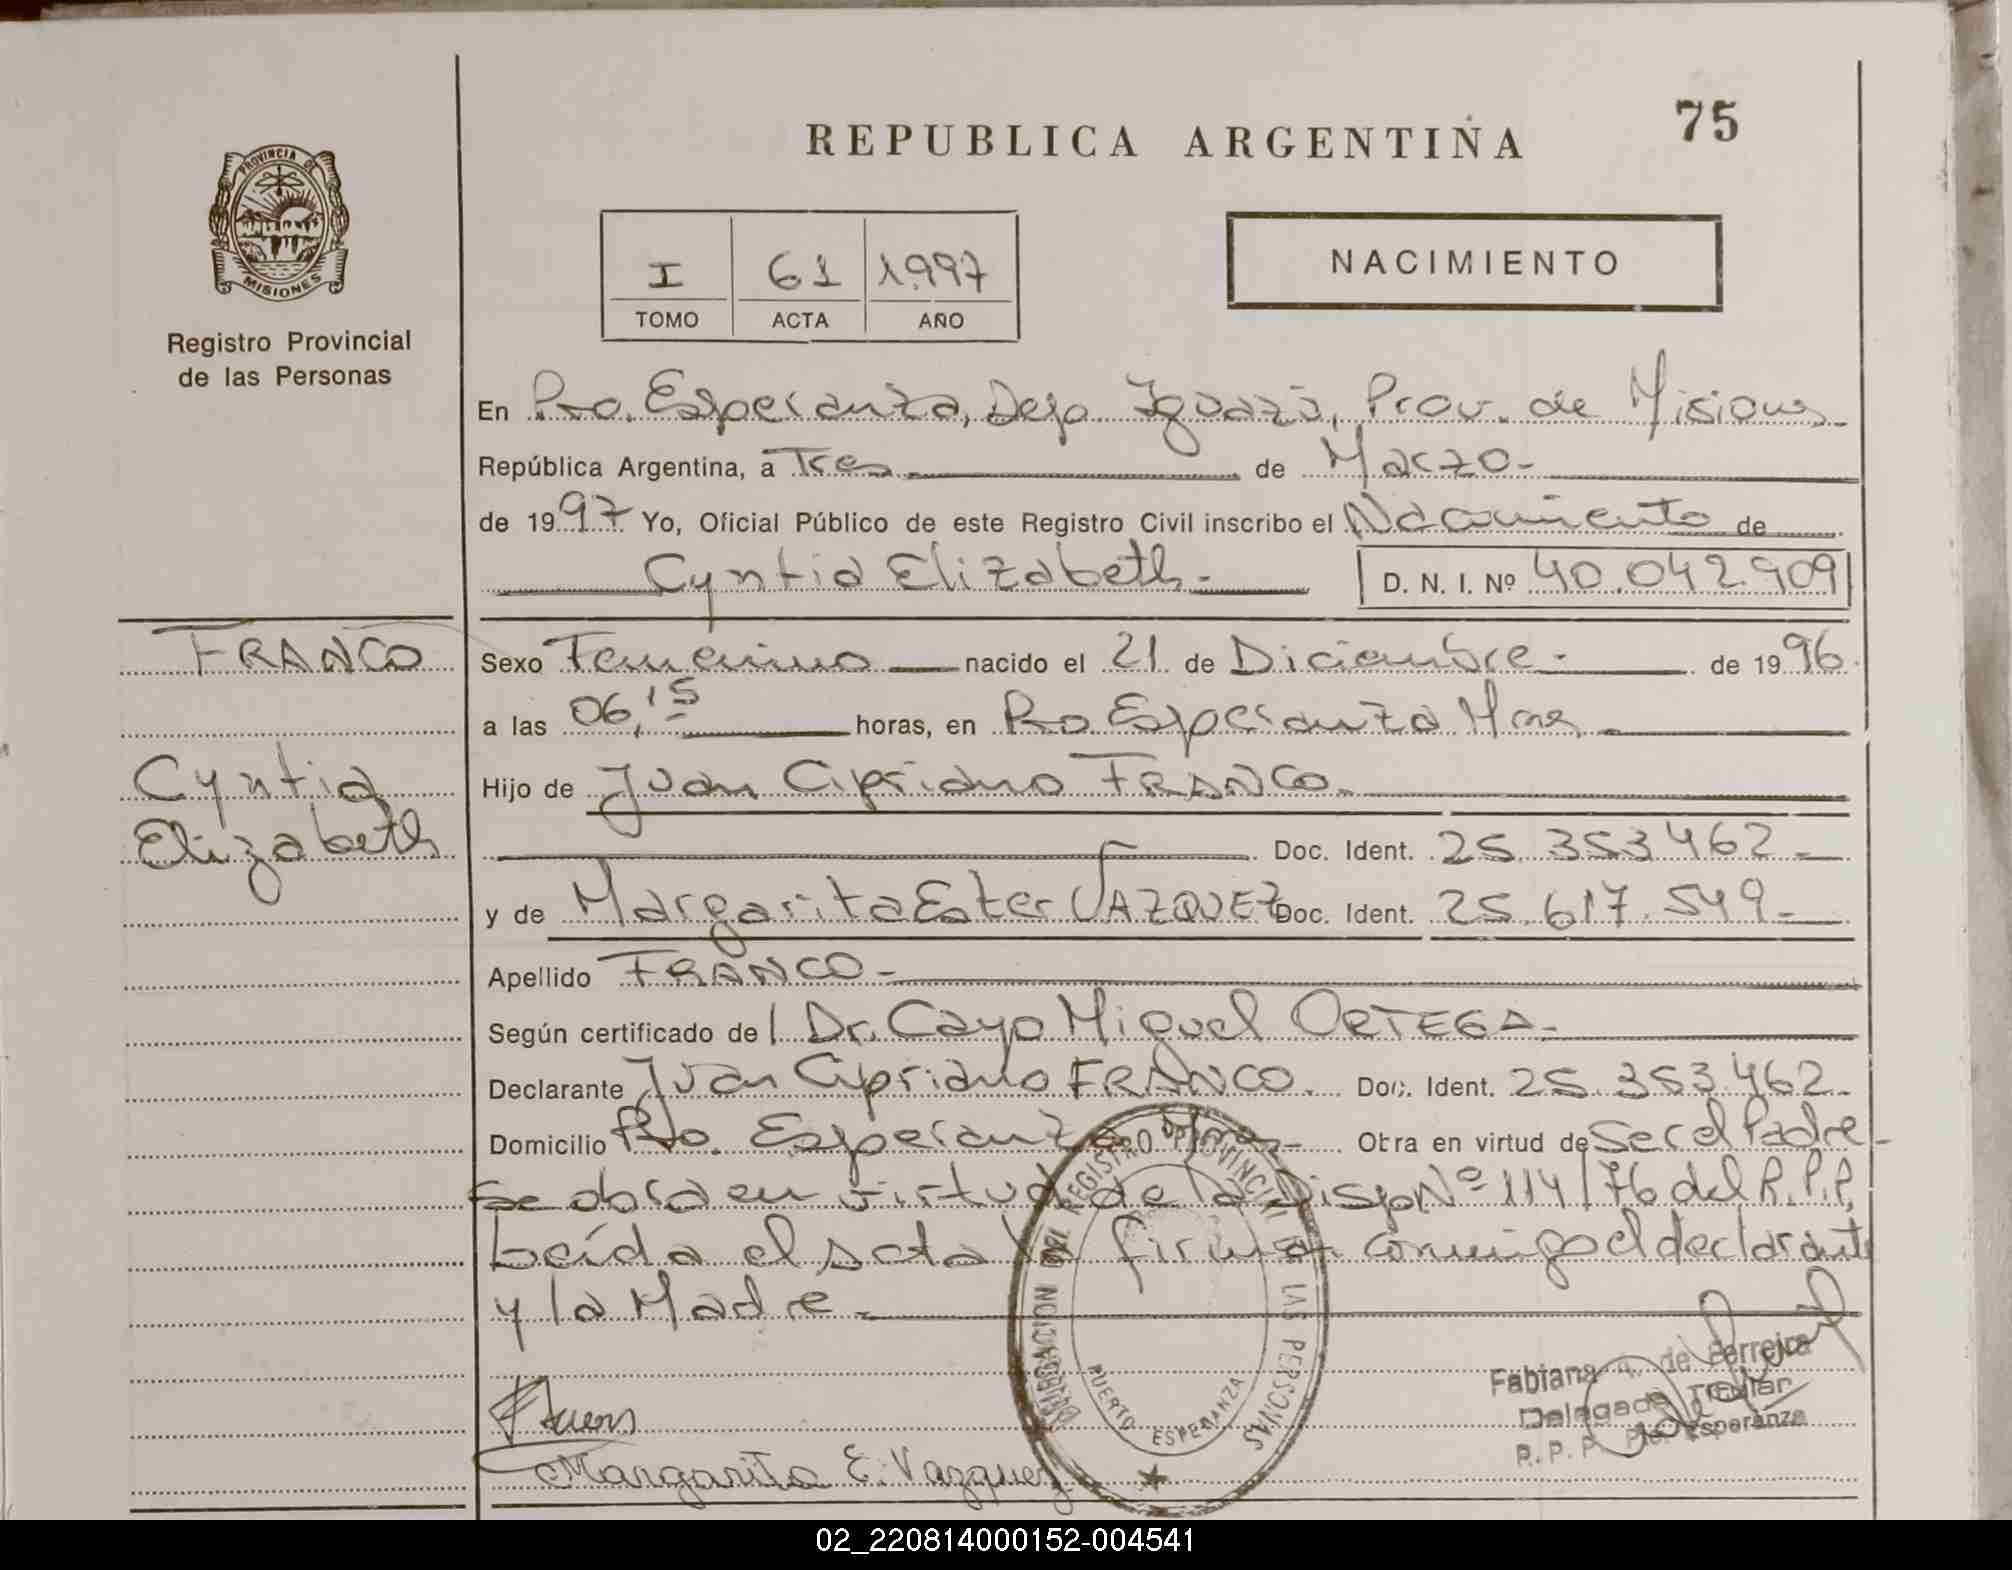 75
REPUBLICA ARGENTIÑA
PROVINCIA DE
MISIONES
Registro Provincial
de las Personas
I 61 1.997
TOMO ACTA AÑO
NACIMIENTO
En Pto. Esperanza, Depo. Iguazú, Prov. de Misiones
República Argentina, a Tres de Marzo
de 1997 Yo, Oficial Público de este Registro Civil inscribo el Nacimiento de
Cyntia Elizabeth.- D. N. I. Nº 40.042.909
FRANCO
Cyntia
Elizabeth
Sexo Femenino nacido el 21 de Diciembre.- de 1996
a las 06,15 horas, en Pto Esperanza Mnes
Hijo de Juan Cipriano FRANCO.
Doc. Ident. 25.353.462-
y de Margarita Ester VAZQUEZ Doc. Ident. 25.617.549-
Apellido FRANCO-
Según certificado de l Dr. Cayo Miguel ORTEGA-
Declarante Juan Cipriano FRANCO. Doc. Ident. 25.353.462-
Domicilio Pto. Esperanza Mnes- Obra en virtud de Ser el Padre-
Se obra en virtud de la Disp Nº 114/76 del R.P.P.
Leída el acta firman conmigo el declarante
y la Madre.-
REGISTRO PROVINCIAL DE LAS PERSONAS
PUERTO ESPERANZA
Fabiana de Ferreira
Delegada Titular
R.P.P. Pto. Esperanza
Margarita E. Vazquez
02_220814000152-004541